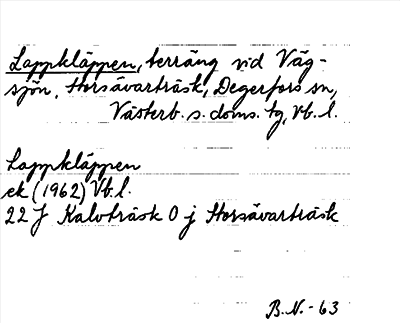 Lappkläppen, terräng vid Väg-
sjön, Storsävarträsk, Degerfors sn,
Västerb. s. doms. tg, Vb. l.
Lappkläppen
ek (1962) Vb. l.
22 J Kalvträsk 0 j Storsävarträsk
B.N.-63